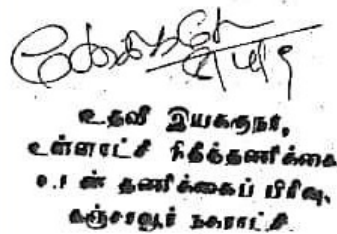 உதவி இயக்குநர்,
உள்ளாட்சி நிதித்தணிக்கை
தணிக்கைப் பிரிவு,
தஞ்சாவூர் நகராட்சி